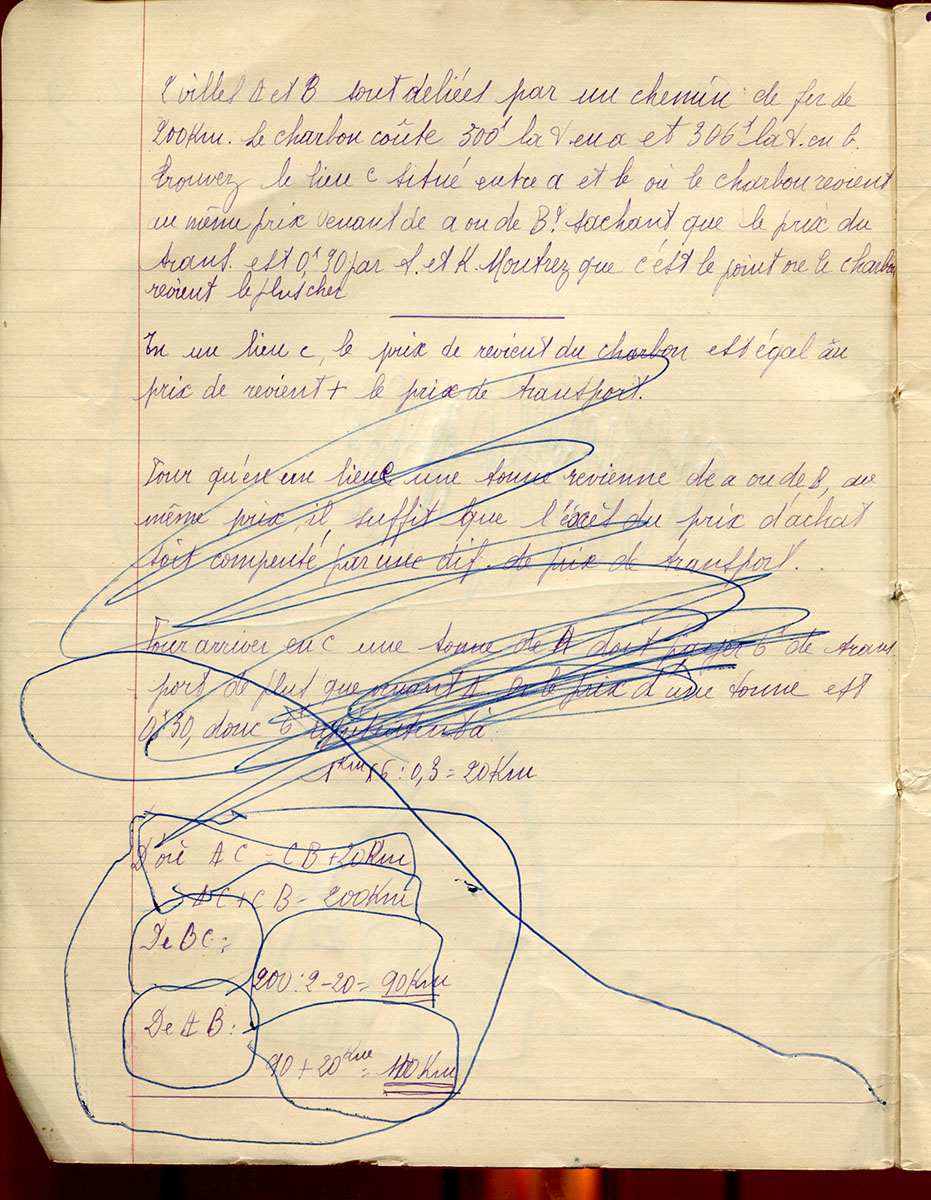 2 villes A et B sont déliées par un chemin de fer de
200Km. Le charbon coûte 300f la t. en a et 306f la t. en b.
Trouvez le lieu c situé entre a et b où le charbon revient
au même prix venant de a ou de B. sachant que le prix du
trans. est 0,f 30 par t. et K. Montrez que c'est le point ou le charbon
revient le plus cher
En un lieu c, le prix de revient du charbon est égal au
prix de revient + le prix de transport.
Pour qu'en un lieu c une tonne revienne de a ou de B, au
même prix il suffit que l'excès du prix d'achat
soit compensé par une dif. de prix de transport.
Pour arriver en c une tonne de A doit payer 6f de trans
port de plus que venant or le prix d'une tonne est
0f30, donc 6f
1Km x 6 : 0,3 = 20Km
D'où AC = CB + 20Km
AC + CB = 200Km
De BC :
200 : 2 - 20 = 90Km
De A B :
90 + 20Km = 110Km